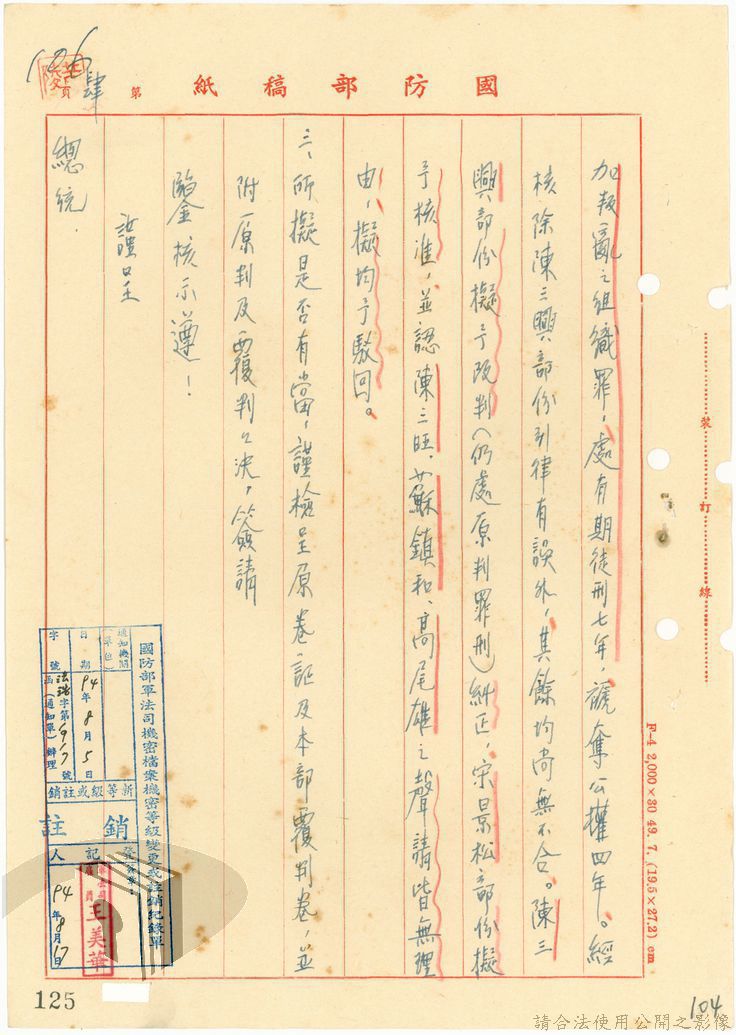 國防部稿紙
第
頁
106
肆
加叛亂之組織罪，處有期徒刑七年，褫奪公權四年。經
核除陳三興部份引律有誤外，其餘均尚無不合。陳三
興部份擬予改判（仍處原判罪刑）糾正，宋景松部份擬
予核准，並認陳三旺、蘇鎮和、高尾雄之聲請皆無理
由，擬均予駁回。
三、所擬是否有當，謹檢呈原卷証及本部覆判卷，並
附原判及覆判公決，簽請
鑒核示遵！
謹呈
總統．
裝訂線
F-4 2,000×30 49. 7. (19.5×27.2) cm
國防部軍法司機密檔案機密等級變更或註銷紀錄單
通知機關（單位）
日期
94年8月5日
字號
法浩字第917號
函（通知單）辦理
新等級或註銷
註銷
登記人
王美華
94年8月17日
125
104
請合法使用公開之影像